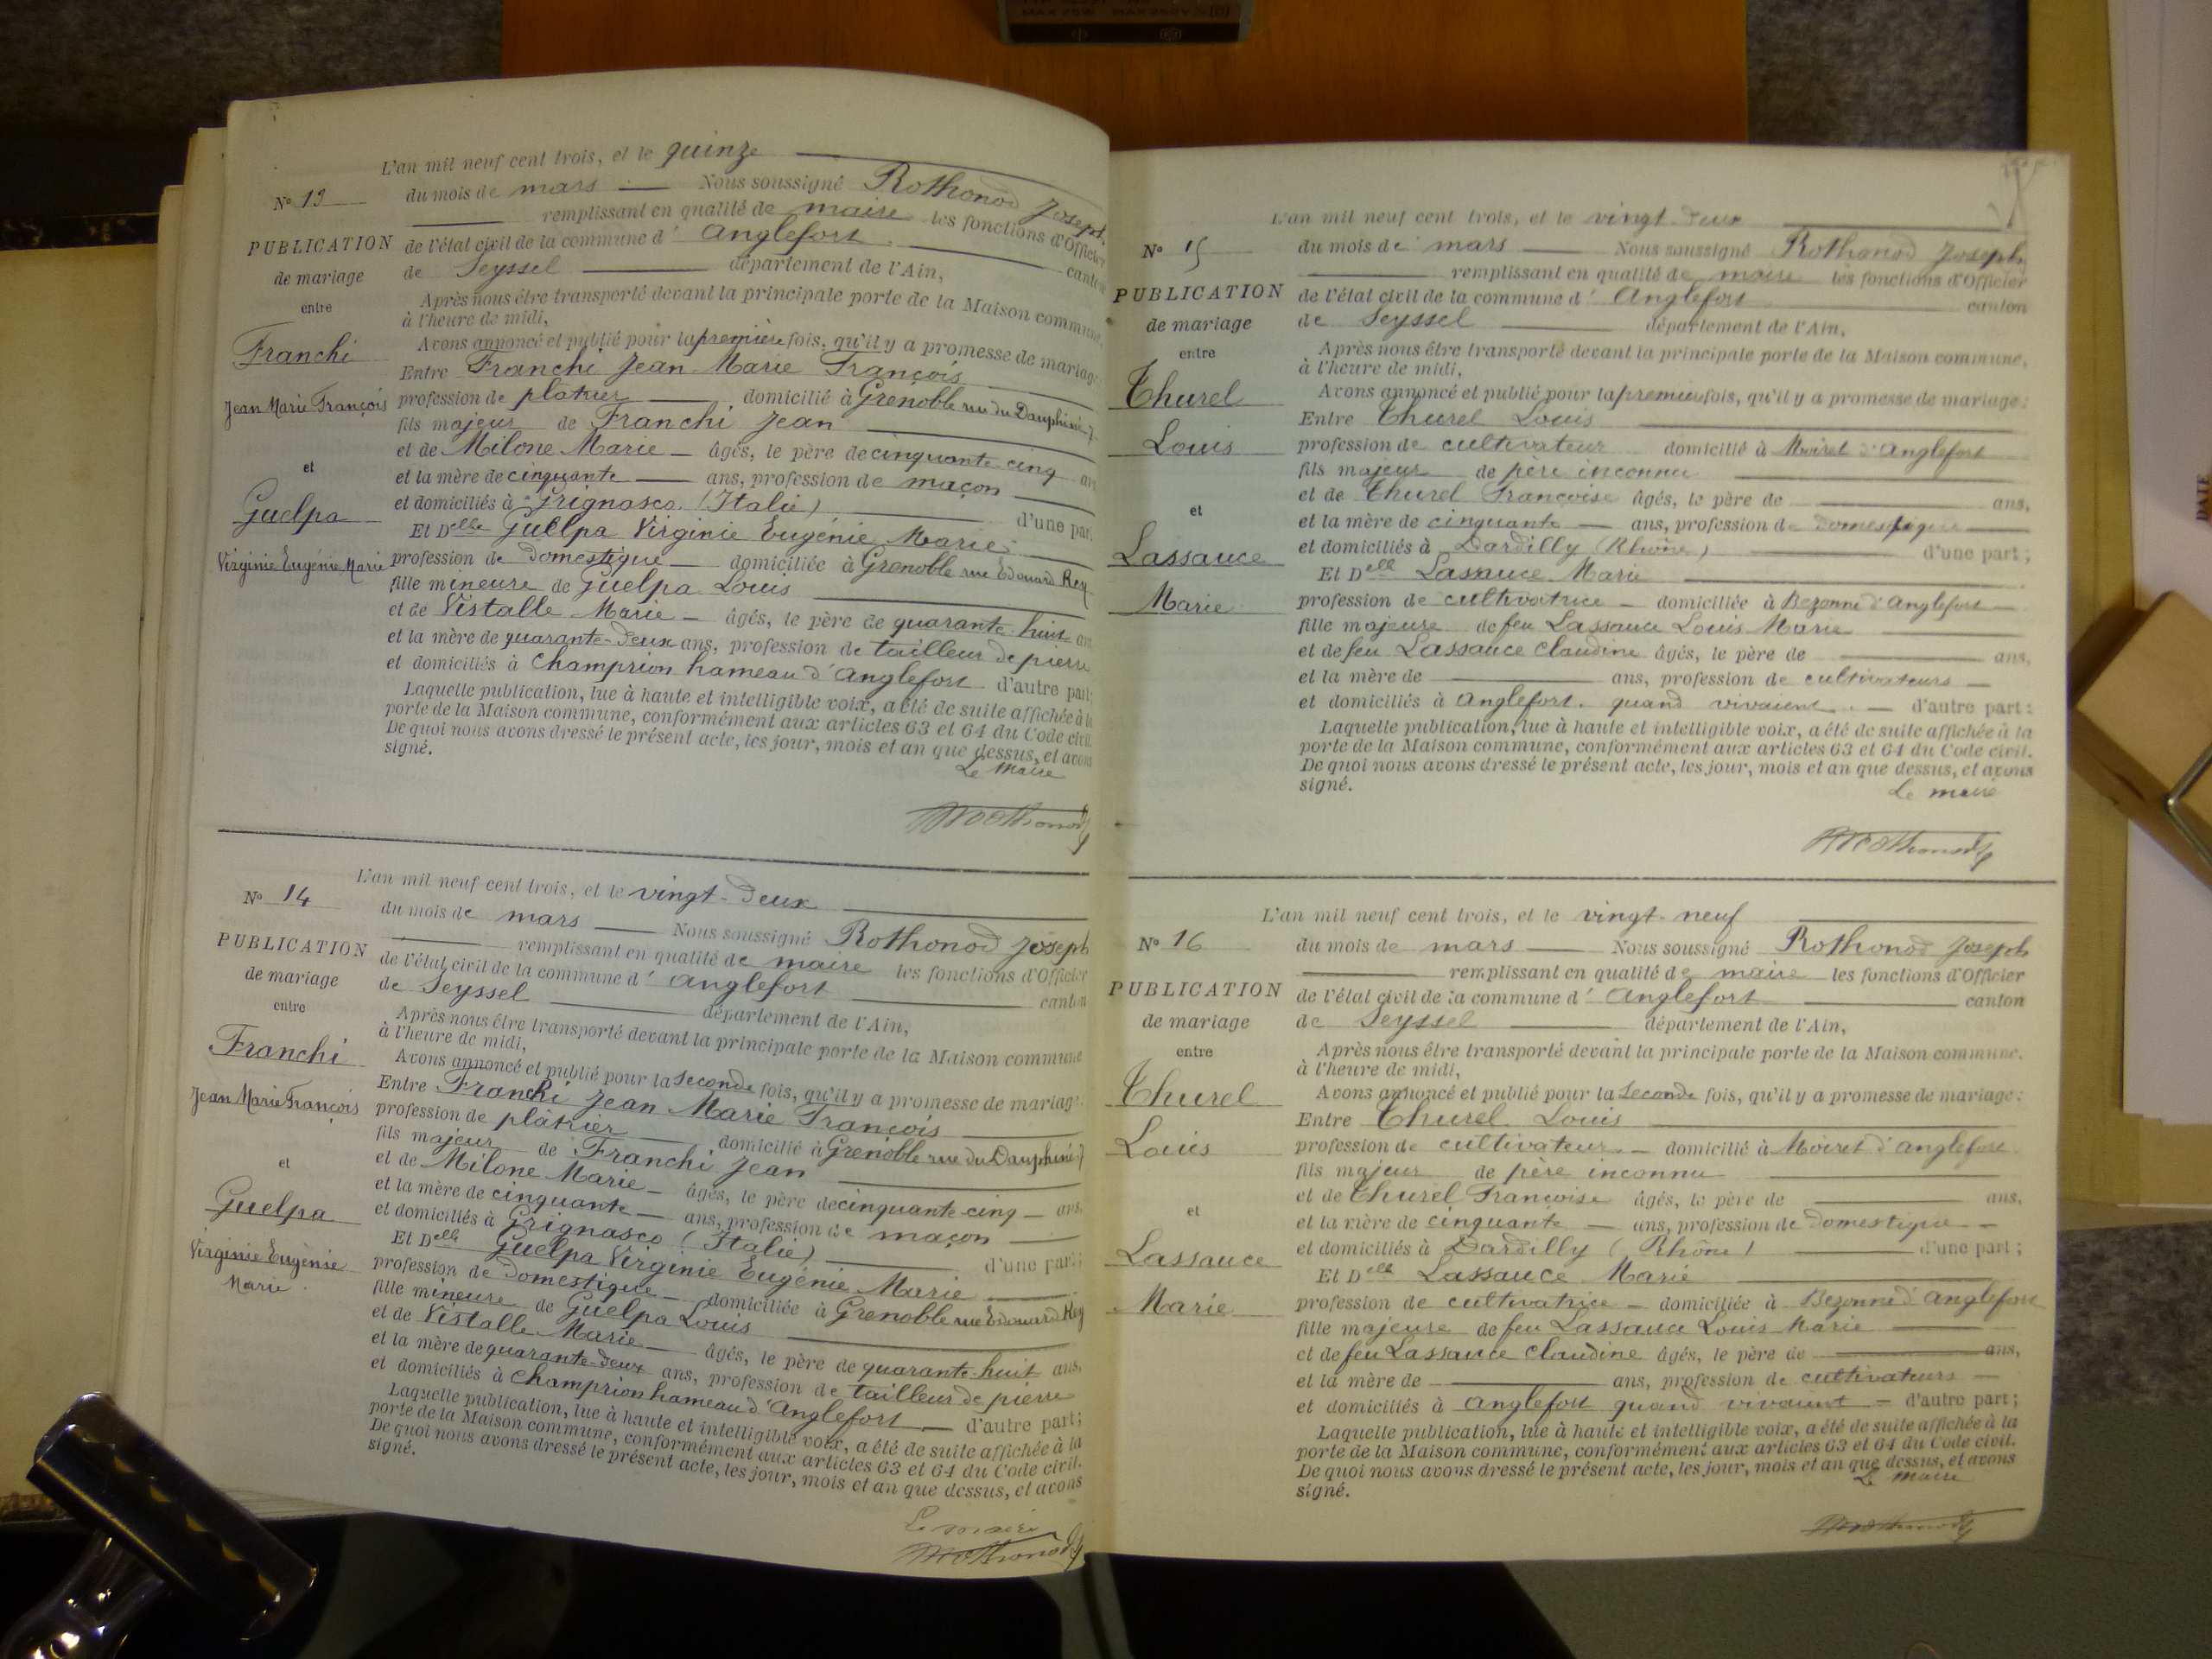 L'an mil neuf cent trois, et le quinze
Nº 13
du mois de mars Nous soussigné Rothonod Joseph
remplissant en qualité de maire les fonctions d'Officier
PUBLICATION
de l'état civil de la commune d' Anglefort canton
de mariage
de Seyssel département de l'Ain,
entre
Après nous être transporté devant la principale porte de la Maison commune,
à l'heure de midi,
Avons annoncé et publié pour la première fois, qu'il y a promesse de mariage
Franchi
Entre Franchi Jean Marie François
Jean Marie François
profession de plâtrier domicilié à Grenoble rue du Dauphiné 7
fils majeur de Franchi Jean
et de Milone Marie âgés, le père de cinquante cinq ans
et
et la mère de cinquante ans, profession de maçon
Guelpa
et domiciliés à Grignasco (Italie) d'une part
Et Delle Guelpa Virginie Eugénie Marie
Virginie Eugénie Marie
profession de domestique domiciliée à Grenoble rue Edouard Rey
fille mineure de Guelpa Louis
et de Vistalle Marie âgés, le père de quarante huit ans
et la mère de quarante-deux ans, profession de tailleur de pierre
et domiciliés à Champrion hameau d'Anglefort d'autre part;
Laquelle publication, lue à haute et intelligible voix, a été de suite affichée à la
porte de la Maison commune, conformément aux articles 63 et 64 du Code civil.
De quoi nous avons dressé le présent acte, les jour, mois et an que dessus, et avons
signé.
Le Maire
Rothonod
L'an mil neuf cent trois, et le vingt-deux
Nº 14
du mois de mars Nous soussigné Rothonod Joseph
remplissant en qualité de maire les fonctions d'Officier
PUBLICATION
de l'état civil de la commune d' Anglefort canton
de mariage
de Seyssel département de l'Ain,
entre
Après nous être transporté devant la principale porte de la Maison commune
à l'heure de midi,
Avons annoncé et publié pour la seconde fois, qu'il y a promesse de mariage.
Franchi
Entre Franchi Jean Marie François
Jean Marie François
profession de plâtrier domicilié à Grenoble rue du Dauphiné 7
fils majeur de Franchi Jean
et de Milone Marie âgés, le père de cinquante cinq ans,
et
et la mère de cinquante ans, profession de maçon
Guelpa
et domiciliés à Grignasco (Italie) d'une part;
Et Delle Guelpa Virginie Eugénie Marie
Virginie Eugénie
Marie
profession de domestique domiciliée à Grenoble rue Edouard Rey
fille mineure de Guelpa Louis
et de Vistalle Marie âgés, le père de quarante-huit ans,
et la mère de quarante-deux ans, profession de tailleur de pierre
et domiciliés à Champrion hameau d'Anglefort d'autre part;
Laquelle publication, lue à haute et intelligible voix, a été de suite affichée à la
porte de la Maison commune, conformément aux articles 63 et 64 du Code civil.
De quoi nous avons dressé le présent acte, les jour, mois et an que dessus, et avons
signé.
Le maire
Rothonod
L'an mil neuf cent trois, et le vingt-deux
Nº 15
du mois de mars Nous soussigné Rothonod Joseph
remplissant en qualité de maire les fonctions d'Officier
PUBLICATION
de l'état civil de la commune d' Anglefort canton
de mariage
de Seyssel département de l'Ain,
entre
Après nous être transporté devant la principale porte de la Maison commune,
à l'heure de midi,
Avons annoncé et publié pour la première fois, qu'il y a promesse de mariage:
Thurel
Entre Thurel Louis
Louis
profession de cultivateur domicilié à Moiret d'Anglefort
fils majeur de père inconnu
et de Thurel Françoise âgés, le père de ans,
et
et la mère de cinquante ans, profession de domestique
Lassauce
et domiciliés à Dardilly (Rhône) d'une part;
Et Delle Lassauce Marie
Marie
profession de cultivatrice domiciliée à Bezonne d'Anglefort
fille majeure de feu Lassauce Louis Marie
et de feu Lassauce Claudine âgés, le père de ans,
et la mère de ans, profession de cultivateurs
et domiciliés à Anglefort quand vivaient d'autre part:
Laquelle publication, lue à haute et intelligible voix, a été de suite affichée à la
porte de la Maison commune, conformément aux articles 63 et 64 du Code civil.
De quoi nous avons dressé le présent acte, les jour, mois et an que dessus, et avons
signé.
Le maire
Rothonod
L'an mil neuf cent trois, et le vingt-neuf
Nº 16
du mois de mars Nous soussigné Rothonod Joseph
remplissant en qualité de maire les fonctions d'Officier
PUBLICATION
de l'état civil de la commune d' Anglefort canton
de mariage
de Seyssel département de l'Ain,
entre
Après nous être transporté devant la principale porte de la Maison commune.
à l'heure de midi,
Avons annoncé et publié pour la seconde fois, qu'il y a promesse de mariage:
Thurel
Entre Thurel Louis
Louis
profession de cultivateur domicilié à Moiret d'Anglefort
fils majeur de père inconnu
et de Thurel Françoise âgés, le père de ans,
et
et la mère de cinquante ans, profession de domestique
Lassauce
et domiciliés à Dardilly (Rhône) d'une part;
Et Delle Lassauce Marie
Marie
profession de cultivatrice domiciliée à Bezonne d'Anglefort
fille majeure de feu Lassauce Louis Marie
et de feu Lassauce Claudine âgés, le père de ans,
et la mère de ans, profession de cultivateurs
et domiciliés à Anglefort quand vivaient d'autre part;
Laquelle publication, lue à haute et intelligible voix, a été de suite affichée à la
porte de la Maison commune, conformément aux articles 63 et 64 du Code civil.
De quoi nous avons dressé le présent acte, les jour, mois et an que dessus, et avons
signé.
Le maire
Rothonod
DATE